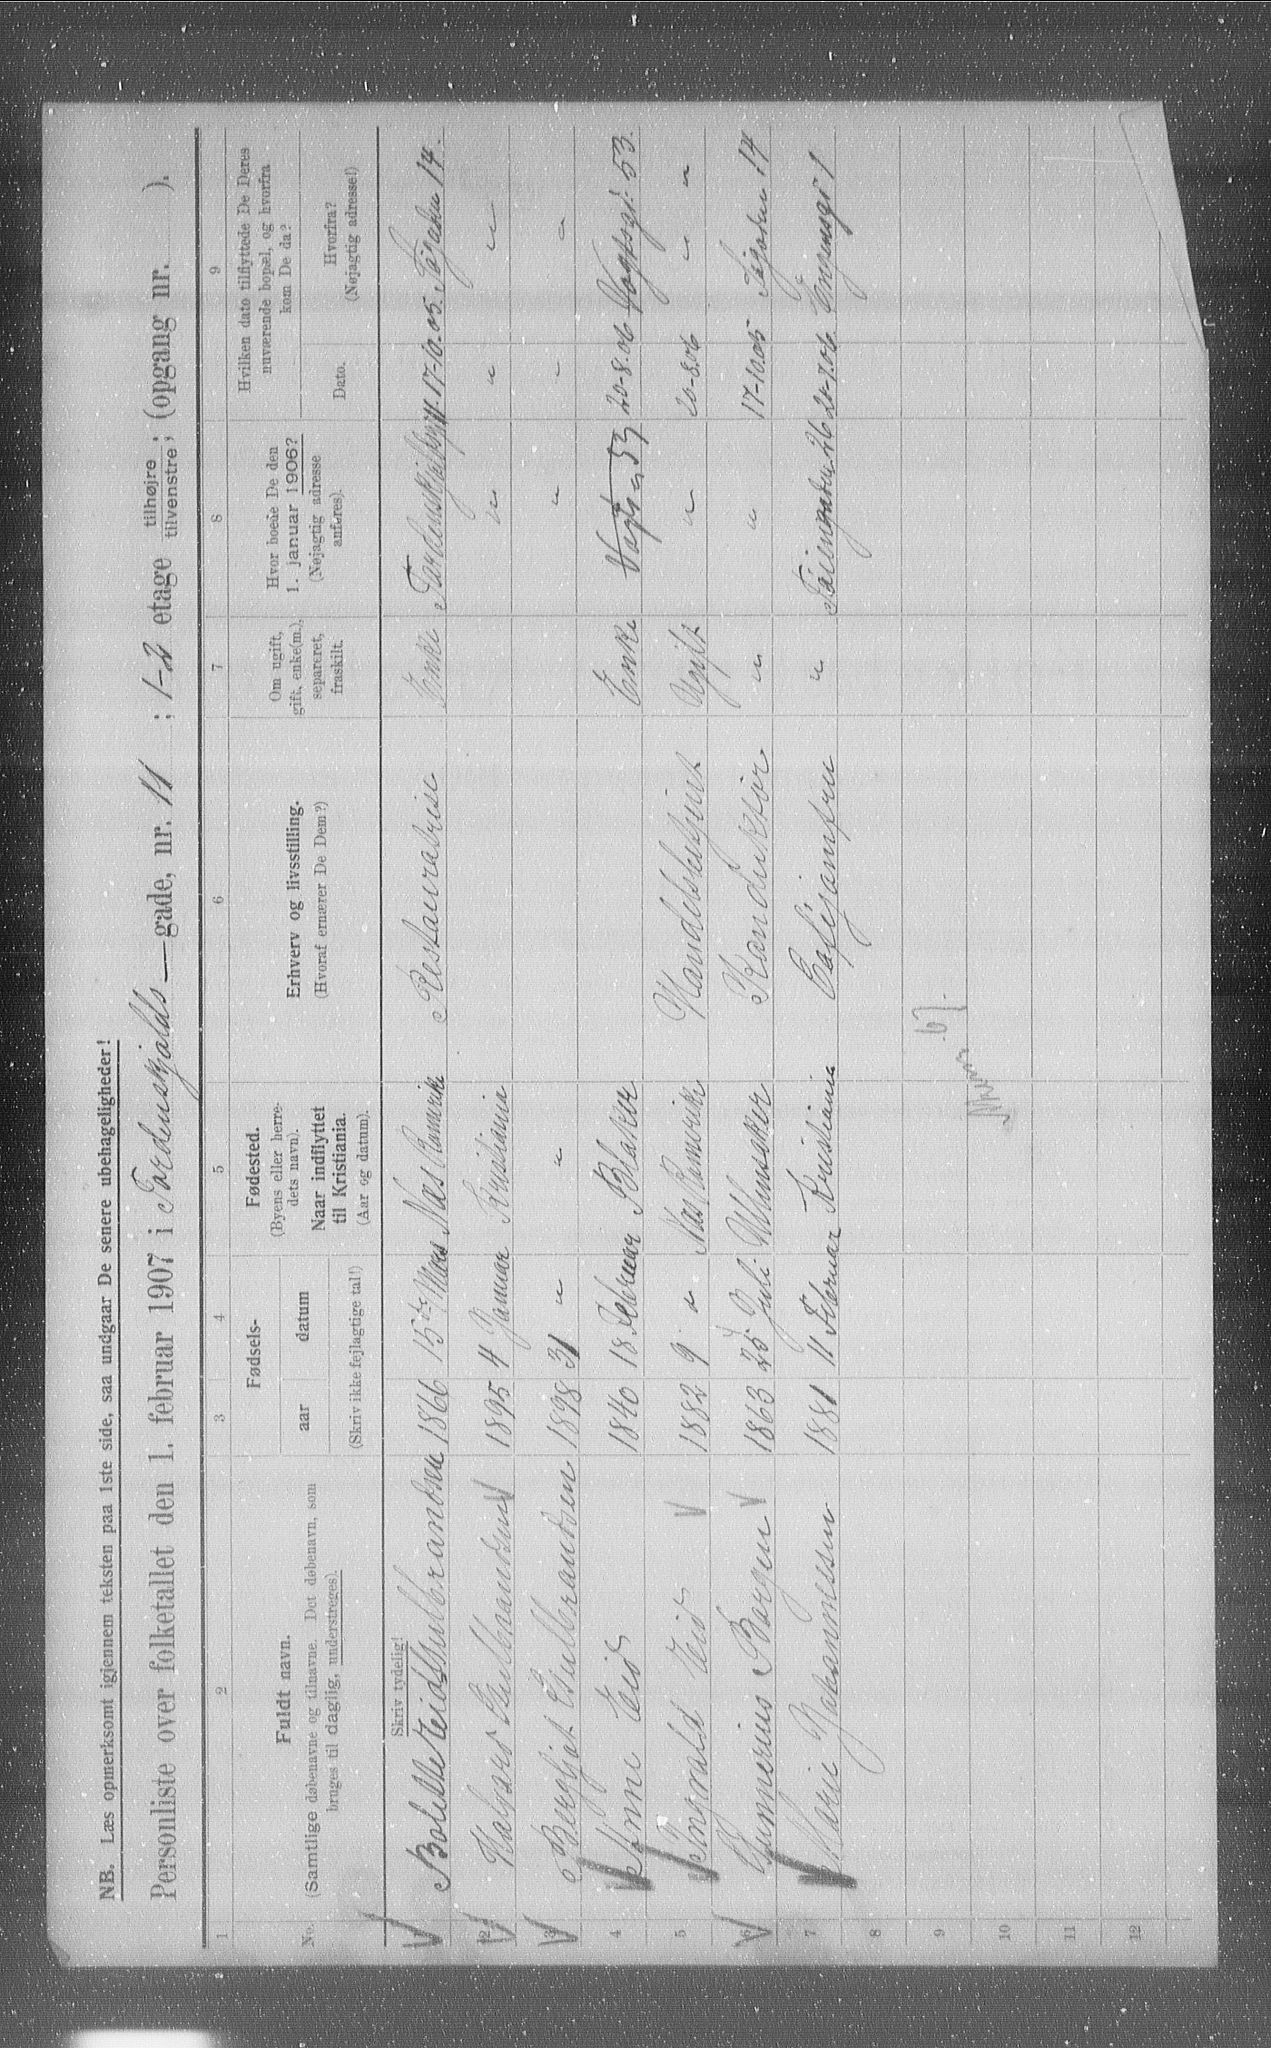 NB. Læs opmerksomt igjennem teksten paa 1ste side, saa undgaar De senere ubehageligheder!
Personliste over folketallet den 1. februar 1907 i Tordenskjolds—gade, nr. 11 ; 1-2 etage tilhøjre, tilvenstre, (opgang nr. ).
1 2 3 4 5 6 7 8 9
No.
Fuldt navn.
(Samtlige døbenavne og tilnavne. Det døbenavn, som
bruges til daglig, understreges).
Fødsels-
aar datum
(Skriv ikke fejlagtige tal!)
Fødested.
(Byens eller herre-
dets navn).
Naar indflyttet
til Kristiania.
(Aar og datum).
Erhverv og livsstilling.
(Hvoraf ernærer De Dem?)
Om ugift,
gift, enke(m.),
separeret,
fraskilt.
Hvor boede De den
1. januar 1906?
(Nøjagtig adresse
anføres).
Hvilken dato tilflyttede De Deres
nuværende bopæl, og hvorfra
kom De da?
Dato.
Hvorfra?
(Nøjagtig adresse!)
Skriv tydelig!
Bolette Eid Gulbrandsen 1866 15de Mars Næs Romerike Restauratrise Enke 17-10.05. 14.
2 Halvard Gulbrandsen 1895 4 Januar Kristiania " " "
3 Bergljot Gulbrandsen 1898 31 " " " " "
4 Anne Eid 1840 18 Februar Blaker Enke Vogtsgt. 53 20-8.06 Vogtsgt. 53.
5 Ingvald Eid 1882 9 " Næs Romerike Handelsbetjent Ugift " 20-8.06 " "
6 Gunnerius Borgen 1863 25 Juli Ullensaker Konduktør " " 17-10.05 14
7 Marie Johannessen 1881 11 Februar Kristiania Cafejomfru " 26 24-7.06 1
8
9
10
11
12